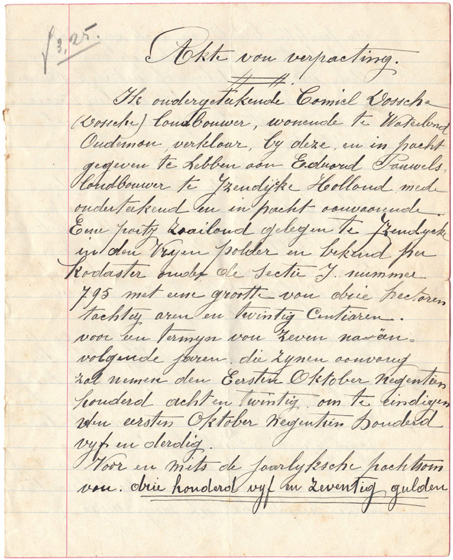 ƒ 3,25.
Akte von verpacting.
Ik ondergetekende Camiel Dossche
(Dossche) landbouwer, wonende te Waterland
Oudeman, verklaar, by deze, en in pacht
gegeven te hebben aan Eduard Pauwels,
landbouwer te Yzendijke Holland mede
ondertekend en in pacht aanvaarende.
Eene party Zaailand gelegen te Yzendycke
in den Vryen polder en bekend per
Kadaster onder de Sectie J. nummer
795 met eene grootte van drie hectaren
tachtig aren en twintig Centiaren.
voor een termyn van Zeven na-
volgende jaren. die zynen aanvang
zal nemen den Eersten Oktober Negentien
honderd acht en twintig om te eindigen
den eersten Oktober Negentien honderd
vyf en dertig.
Voor en mits de jaarlyksche pachtsom
van. drie honderd vyf en zeventig gulden